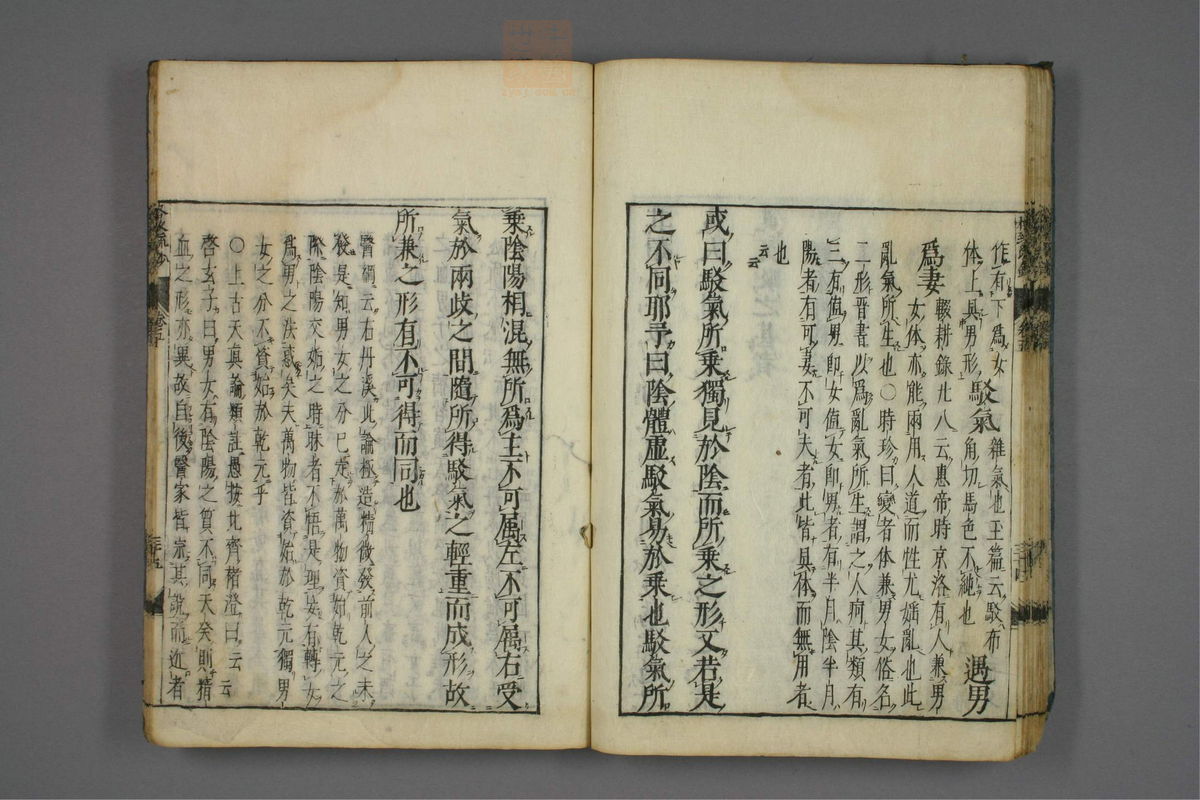 作有下爲女
体上具男形
駁氣
雜氣也玉篇云駁布
角切馬色不純也
遇男
爲妻
輟耕錄廿八云惠帝時京洛有人兼男
女体亦能兩用人道而性尤婬亂也此
亂氣所生也○時珍曰變者体兼男女俗名
二形晉書以爲亂氣所生謂之人痾其類有
三有値男即女値女即男者有半月陰半月
陽者有可妻不可夫者此皆具体而無用者
也
云云
或曰駁氣所乗獨見於陰而所乗之形又若是
之不同耶予曰陰體虛駁氣易於乗也駁氣所
乗陰陽相混無所爲主不可属左不可属右受
氣於兩歧之間隨所得駁氣之輕重而成形故
所兼之形有不可得而同也
醫碥云右丹溪此論極造精微發前人之未
發是知男女之分已定於萬物資始乾元之
際陰陽交姤之時昧者不悟是理妄有轉女
爲男之法惑矣夫萬物皆資始於乾元獨男
女之分不資始於乾元乎
○上古天眞論類註愚按此齊褚澄曰云云
啓玄子曰男女有陰陽之質不同天癸則精
血之形亦異故自後醫家皆宗其說而近者
三十五